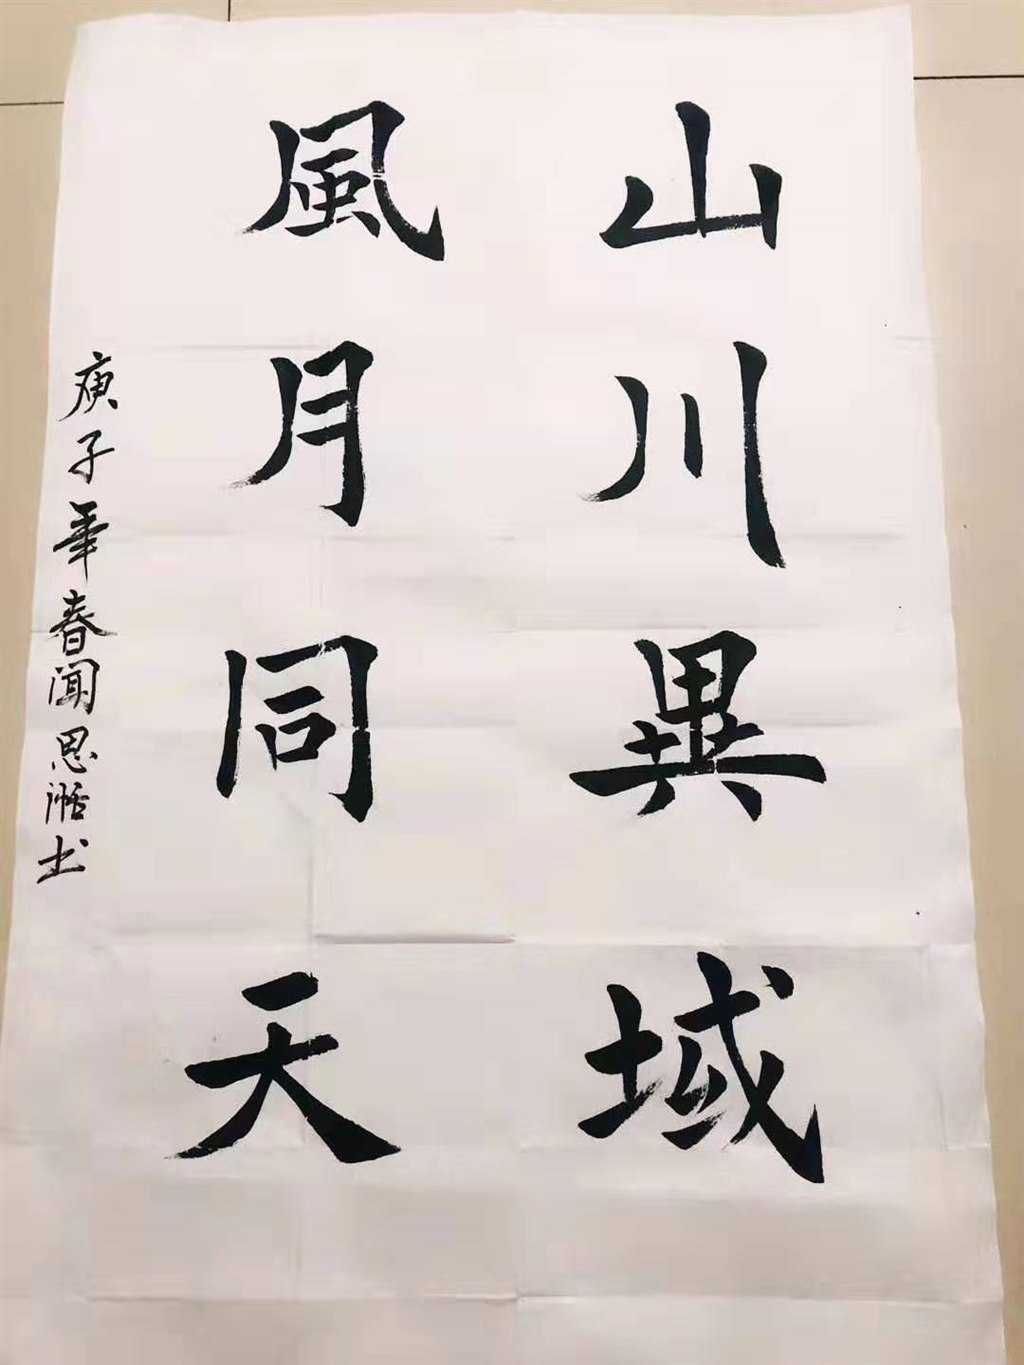 山川異域
風月同天
庚子年春闻思湉书